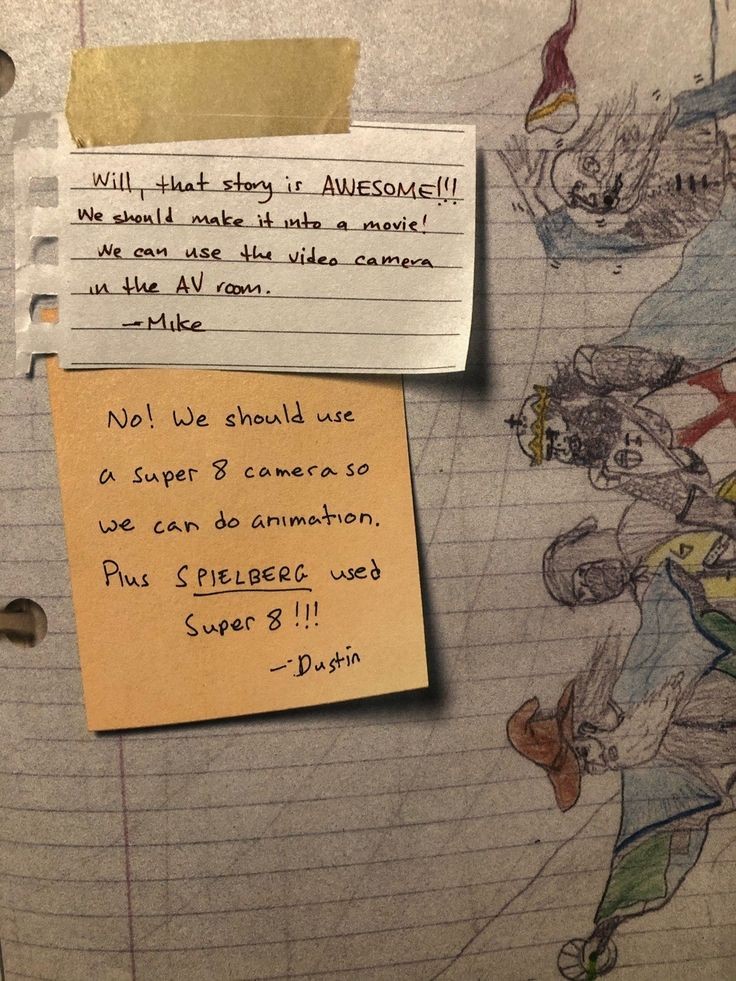 Will, that story is AWESOME!!!
We should make it into a movie!
We can use the video camera
in the AV room.
—Mike
No! We should use
a super 8 camera so
we can do animation.
Plus SPIELBERG used
Super 8!!!
—Dustin